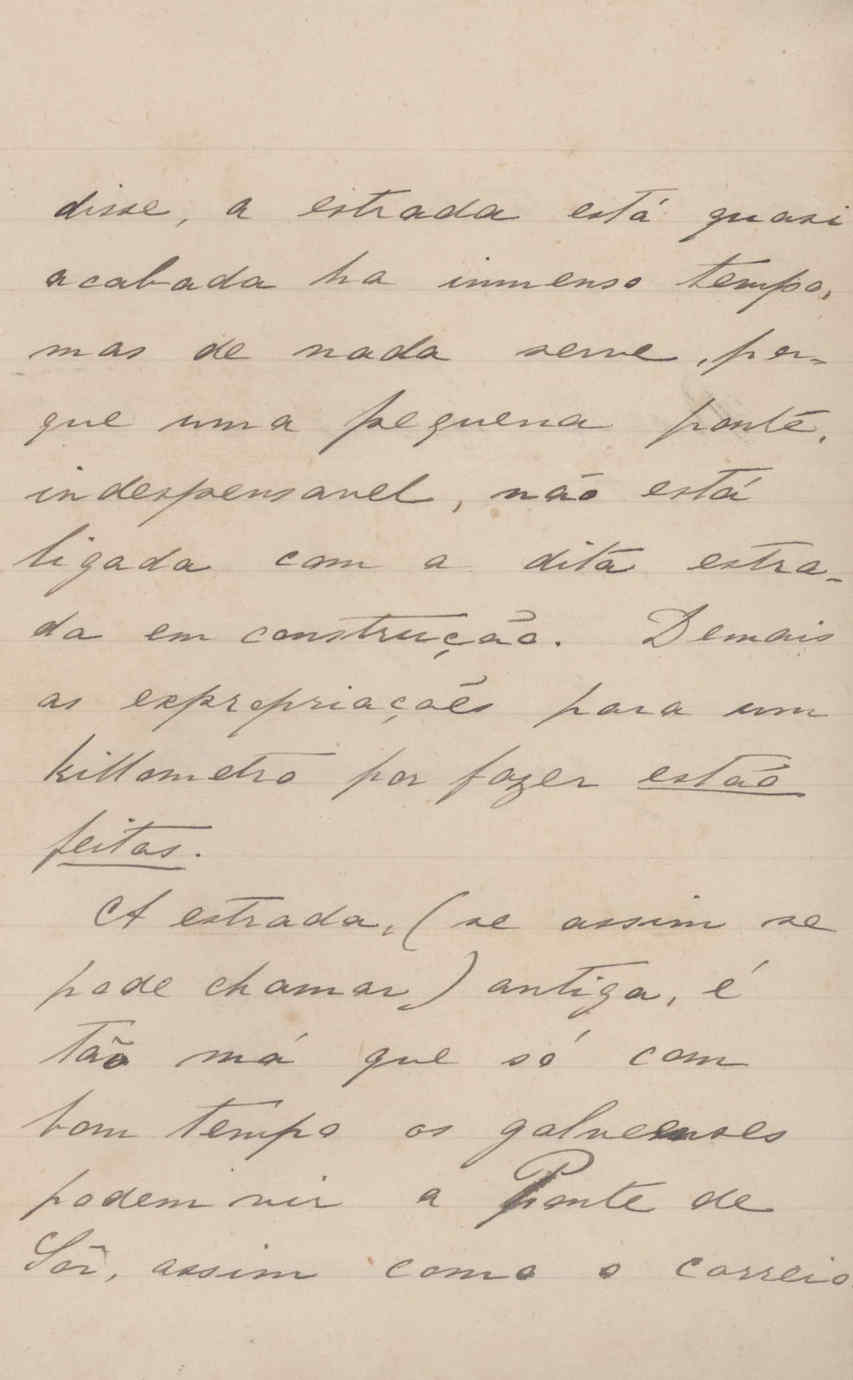 disse, a estrada está quasi
acabada ha inmenso tempo,
mas de nada serve, por-
que uma pequena ponte,
indespensavel, não está
ligada com a dita estra-
da em construção. Demais
as expropriações para um
killometro por fazer estão
feitas.
A estrada, (se assim se
pode chamar) antiga, é
tão má que só com
bom tempo os galveenses
podem vir a Ponte de
Sôr, assim como o correio